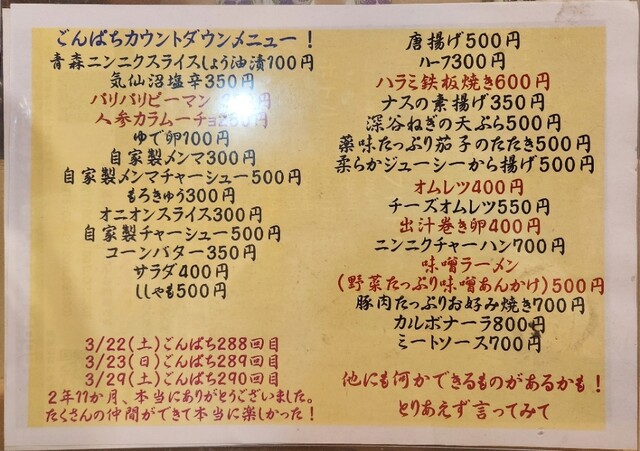 ごんぱちカウントダウンメニュー！
青森ニンニクスライスしょう油漬100円
気仙沼塩辛350円
バリバリピーマン
人参カラムーチョ
ゆで卵100円
自家製メンマ300円
自家製メンマチャーシュー500円
もろきゅう300円
オニオンスライス300円
自家製チャーシュー500円
コーンバター350円
サラダ400円
ししゃも500円
3/22(土)ごんぱち288回目
3/23(日)ごんぱち289回目
3/29(土)ごんぱち290回目
2年11か月、本当にありがとうございました。
たくさんの仲間ができて本当に楽しかった！
唐揚げ500円
ハーフ300円
ハラミ鉄板焼き600円
ナスの素揚げ350円
深谷ねぎの天ぷら500円
薬味たっぷり茄子のたたき500円
柔らかジューシーから揚げ500円
オムレツ400円
チーズオムレツ550円
出汁巻き卵400円
ニンニクチャーハン700円
味噌ラーメン
(野菜たっぷり味噌あんかけ)500円
豚肉たっぷりお好み焼き700円
カルボナーラ800円
ミートソース700円
他にも何かできるものがあるかも！
とりあえず言ってみて